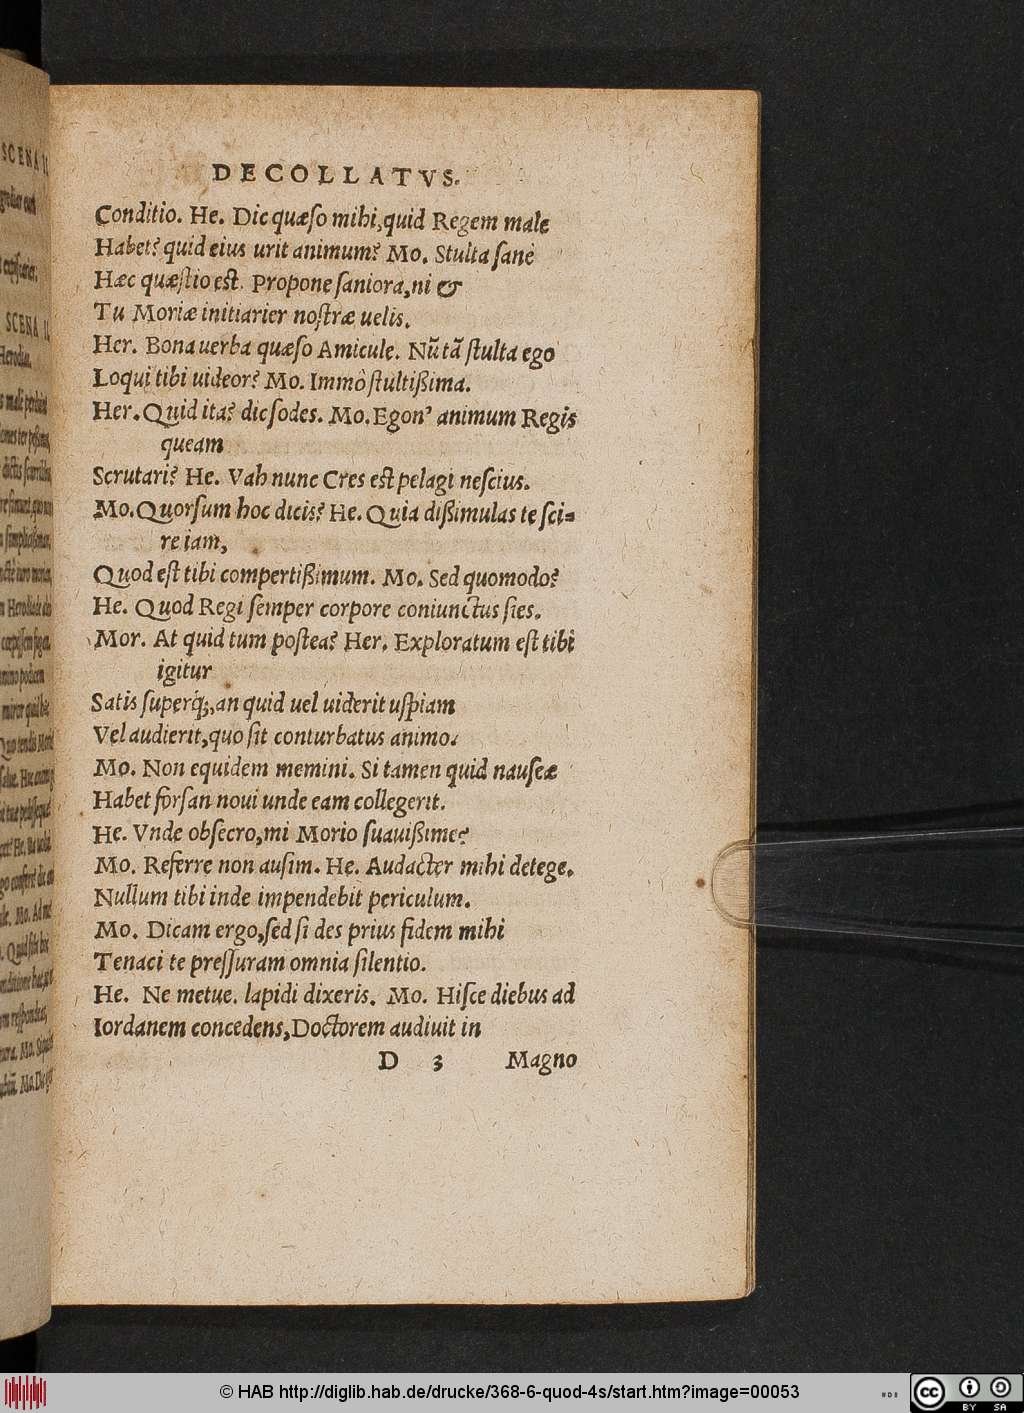 SCENA II.
SCENA II.
DECOLLATVS.
Conditio. He. Dic quæſo mihi, quid Regem male
Habet? quid eius urit animum? Mo. Stulta ſanè
Hæc quæſtio eſt. Propone ſaniora, ni &
Tu Moriæ initiarier noſtræ uelis.
Her. Bona uerba quæſo Amicule. Nũ tã ſtulta ego
Loqui tibi uideor? Mo. Immò ſtultißima.
Her. Quid ita? dic ſodes. Mo. Egon' animum Regis
queam
Scrutari? He. Vah nunc Cres eſt pelagi neſcius.
Mo. Quorſum hoc dicis? He. Quia dißimulas te ſci=
re iam,
Quod eſt tibi compertißimum. Mo. Sed quomodo?
He. Quod Regi ſemper corpore coniunctus ſies.
Mor. At quid tum poſtea? Her. Exploratum eſt tibi
igitur
Satis ſuperq́;, an quid uel uiderit uſpiam
Vel audierit, quo ſit conturbatus animo.
Mo. Non equidem memini. Si tamen quid nauſeæ
Habet forſan noui unde eam collegerit.
He. Vnde obſecro, mi Morio ſuauißime?
Mo. Referre non auſim. He. Audacter mihi detege.
Nullum tibi inde impendebit periculum.
Mo. Dicam ergo, ſed ſi des prius fidem mihi
Tenaci te preſſuram omnia ſilentio.
He. Ne metue. lapidi dixeris. Mo. Hiſce diebus ad
Iordanem concedens, Doctorem audiuit in
D 3 Magno
© HAB http://diglib.hab.de/drucke/368-6-quod-4s/start.htm?image=00053
cc BY SA